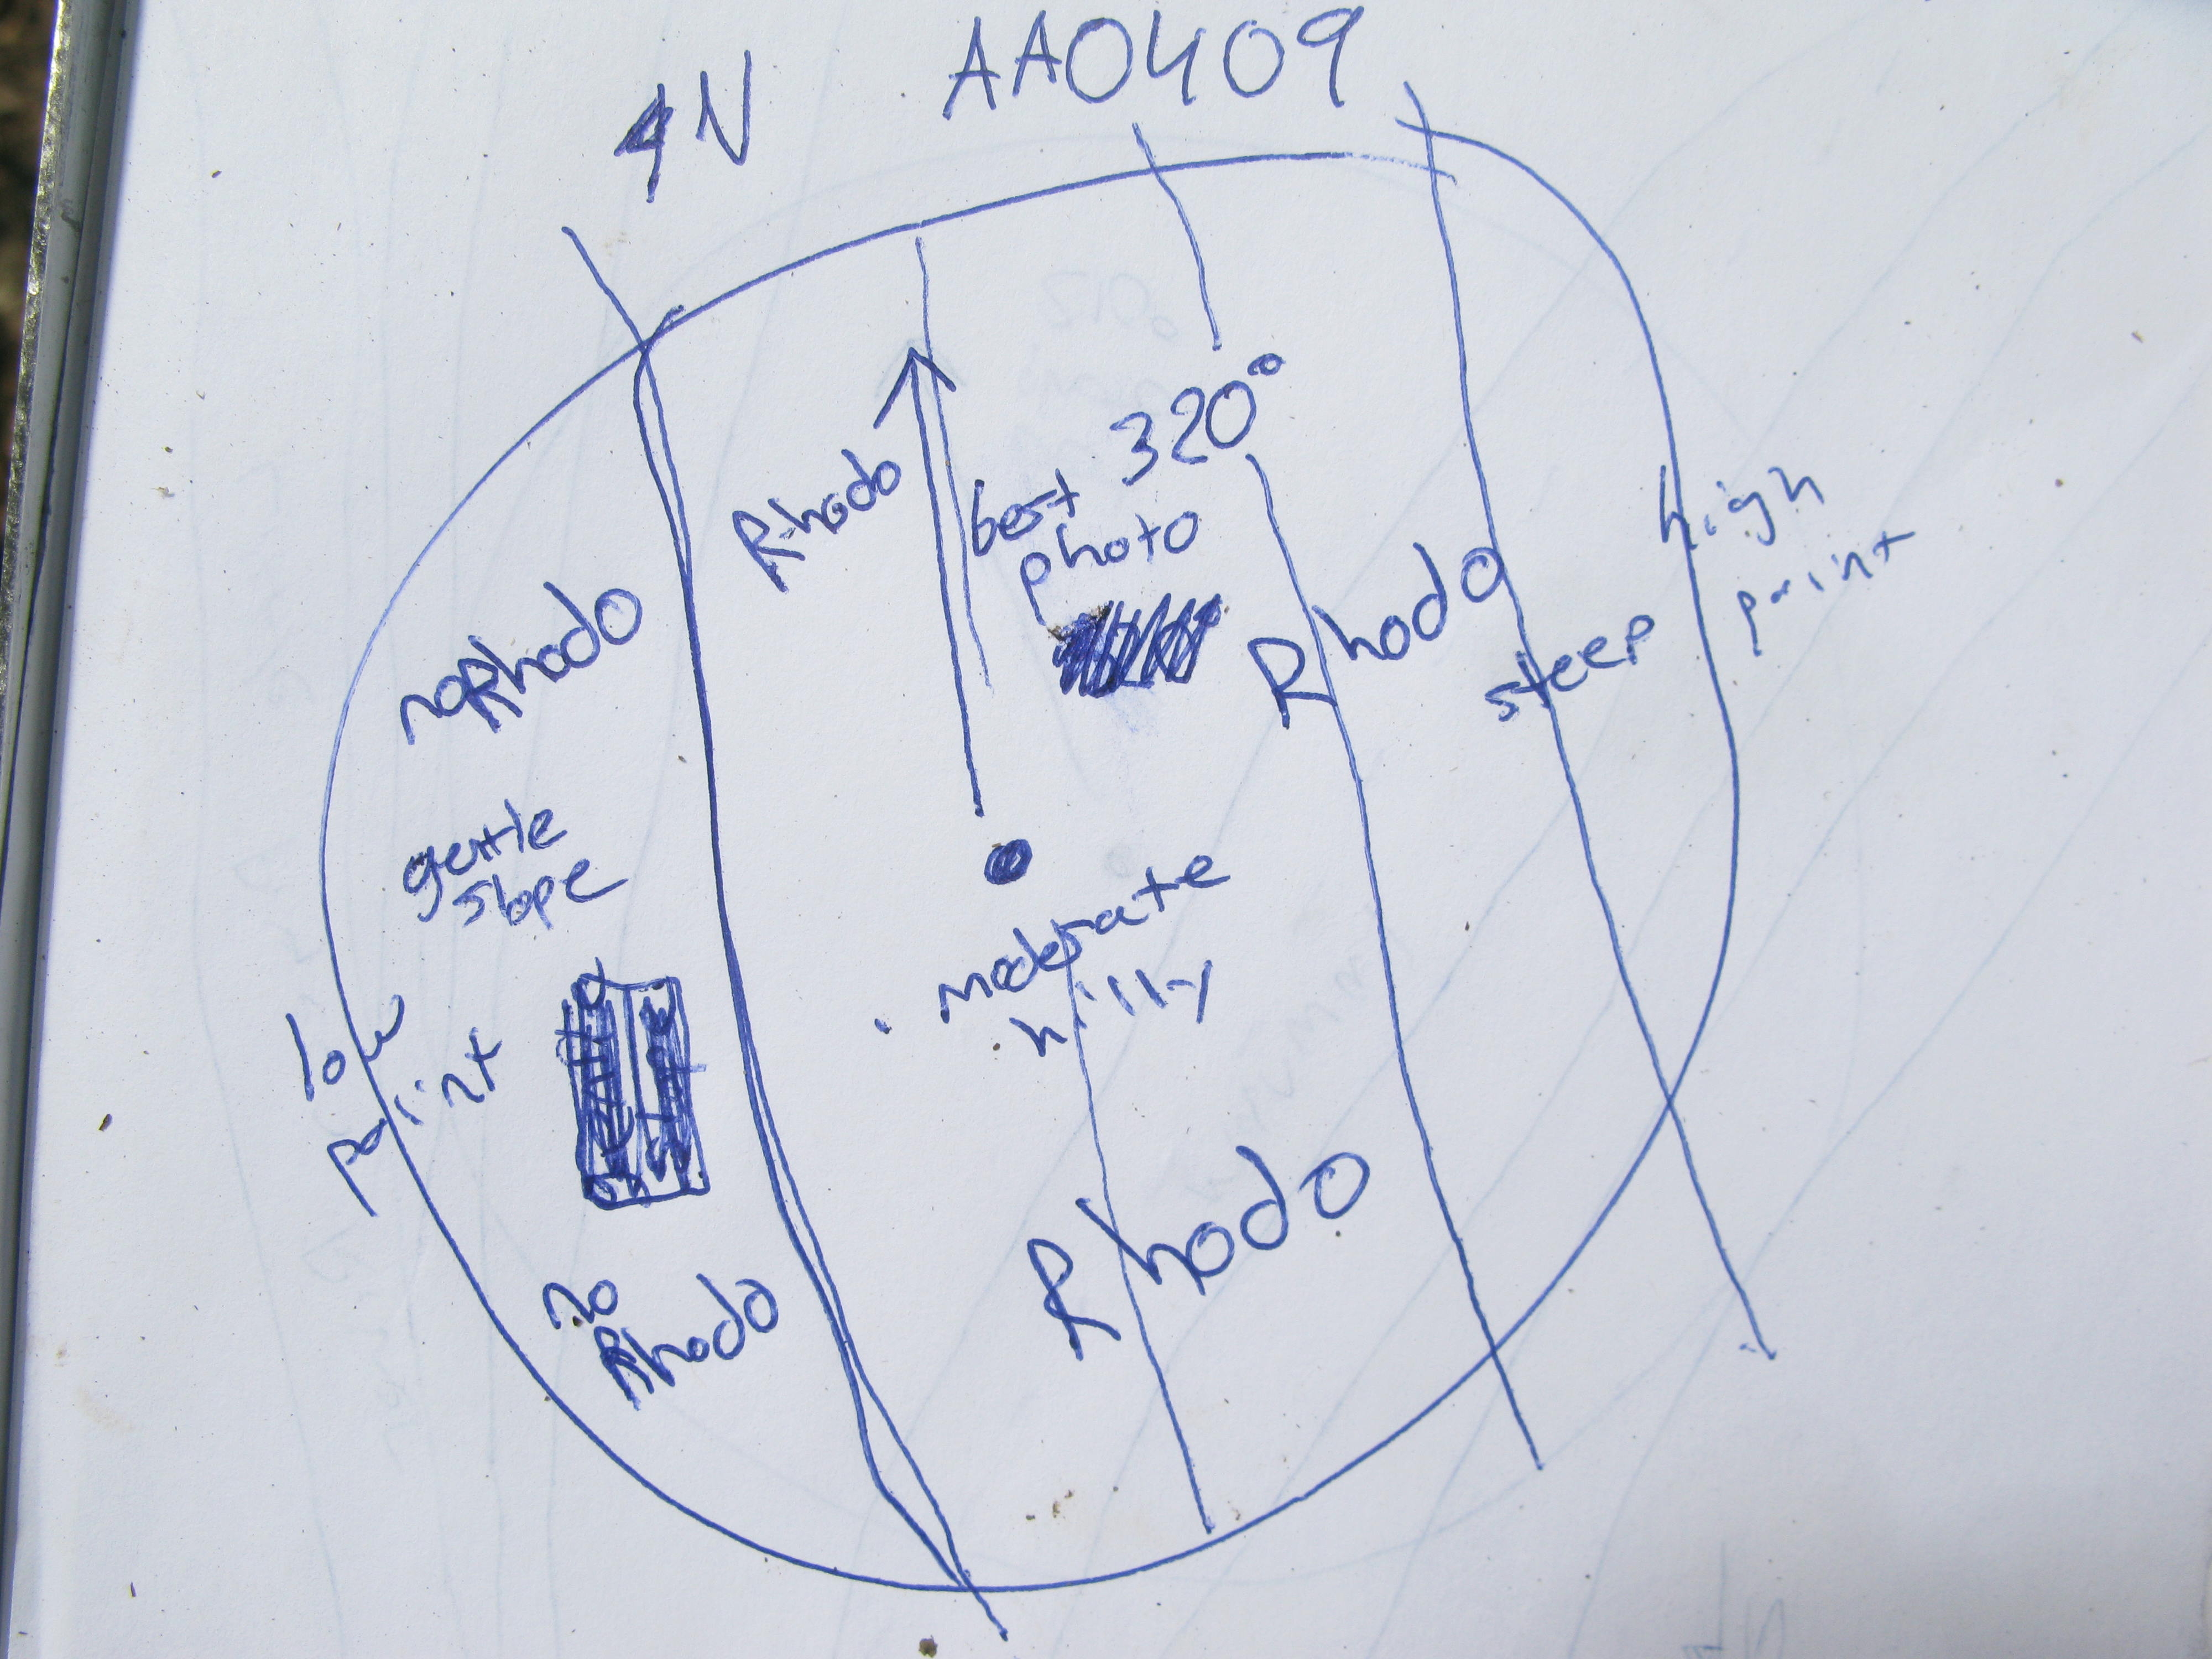 AA0409
N
320°
Rhodo
best
photo
high
point
Rhodo
steep
noRhodo
gentle
slope
moderate
hilly
low
point
Rhodo
no
Rhodo